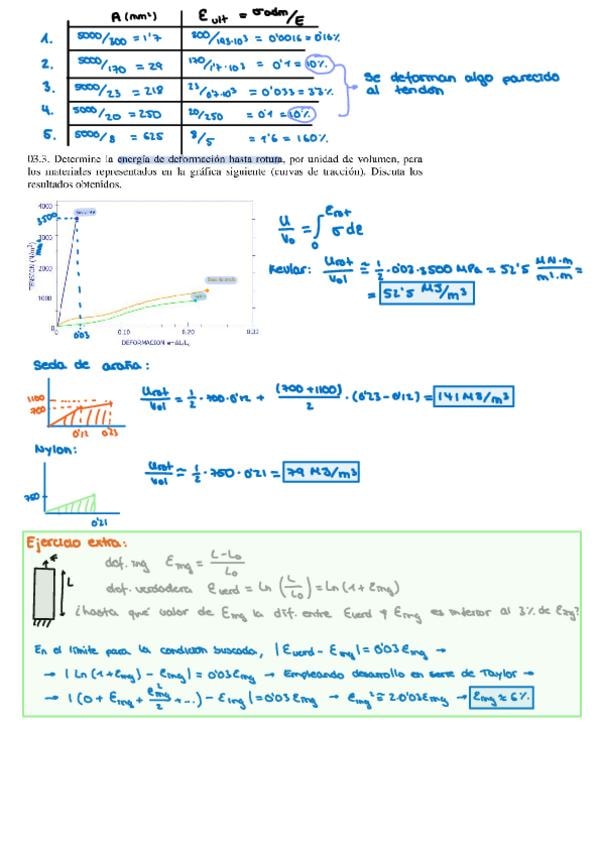 A (mm²) ε ult = σadm/E
1. 5000/300 = 1'7 300/193·10³ = 0'0016 = 0'16%
2. 5000/170 = 29 170/1'7·10³ = 0'1 = 10%
Se deforman algo parecido
al tendón
3. 5000/23 = 218 23/0'7·10³ = 0'033 = 3'3%
4. 5000/20 = 250 20/250 = 0'1 = 10%
5. 5000/8 = 625 8/5 = 1'6 = 160%
03.3. Determine la energía de deformación hasta rotura, por unidad de volumen, para
los materiales representados en la gráfica siguiente (curvas de tracción). Discuta los
resultados obtenidos.
4000
3500
3000
2000
1000
0
0.10 0.20
0'03
TENSION (N/m²)
DEFORMACION e=ΔL/L₀
U/V₀ = ∫₀^εrot σ dε
Kevlar: Urot/Vol ≈ 1/2 · 0'03 · 3500 MPa = 52'5 MN·m/m²·m =
= 52'5 MJ/m³
Seda de araña:
1100
700
0'12 0'23
Urot/Vol = 1/2 · 700 · 0'12 + (700+1100)/2 · (0'23 - 0'12) = 141 MJ/m³
Nylon:
750
0'21
Urot/Vol ≈ 1/2 · 750 · 0'21 = 79 MJ/m³
Ejercicio extra:
def. ing εing = L-L₀/L₀
def. verdadera εverd = Ln (L/L₀) = Ln (1 + εing)
L
¿hasta qué valor de εing la dif. entre εverd y εing es inferior al 3% de εing?
En el límite para la condición buscada, |εverd - εing| = 0'03 εing →
→ |Ln (1+εing) - εing| = 0'03 εing → Empleando desarrollo en serie de Taylor →
→ |(0 + εing + εing²/2 + ...) - εing| = 0'03 εing → εing² = 2·0'03 εing → εing ≈ 6%